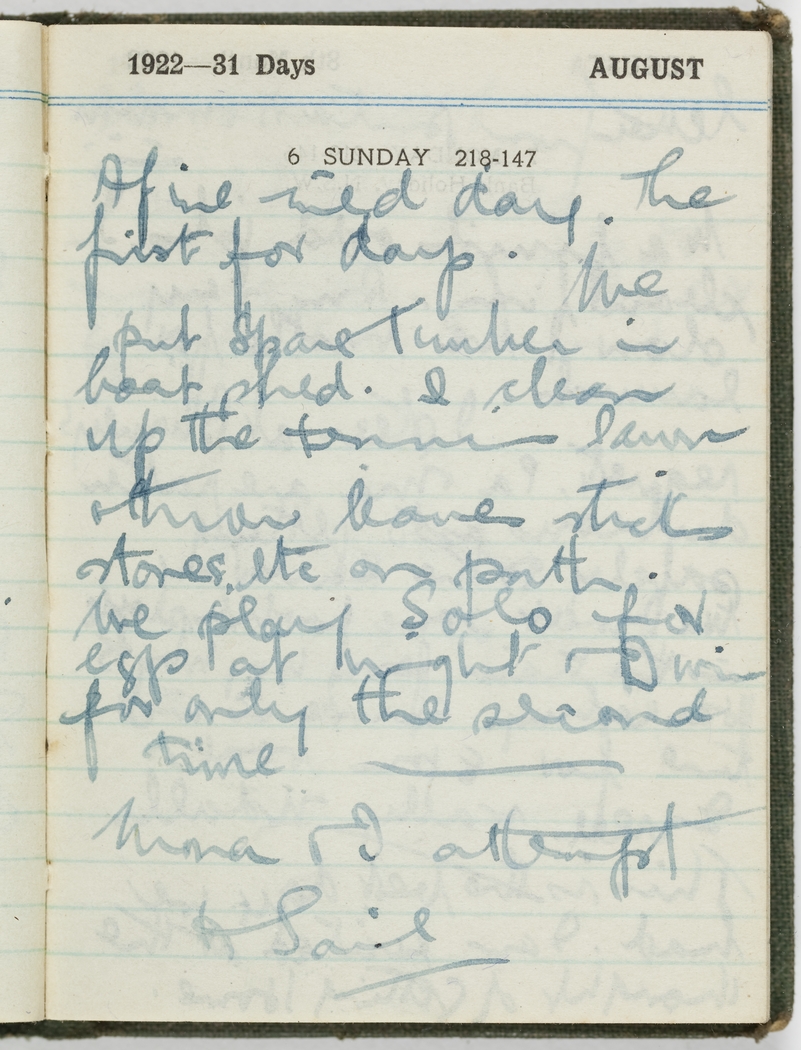 1922—31 Days AUGUST
6 SUNDAY 218-147
A fine mild day. The
first for days. We
put spare timber in
boat shed. I clean
up the tennis lawn
throw leaves sticks
stones, etc on path.
We play Solo for
egp at night & I win
for only the second
time
Mona & I attempt
to Sail